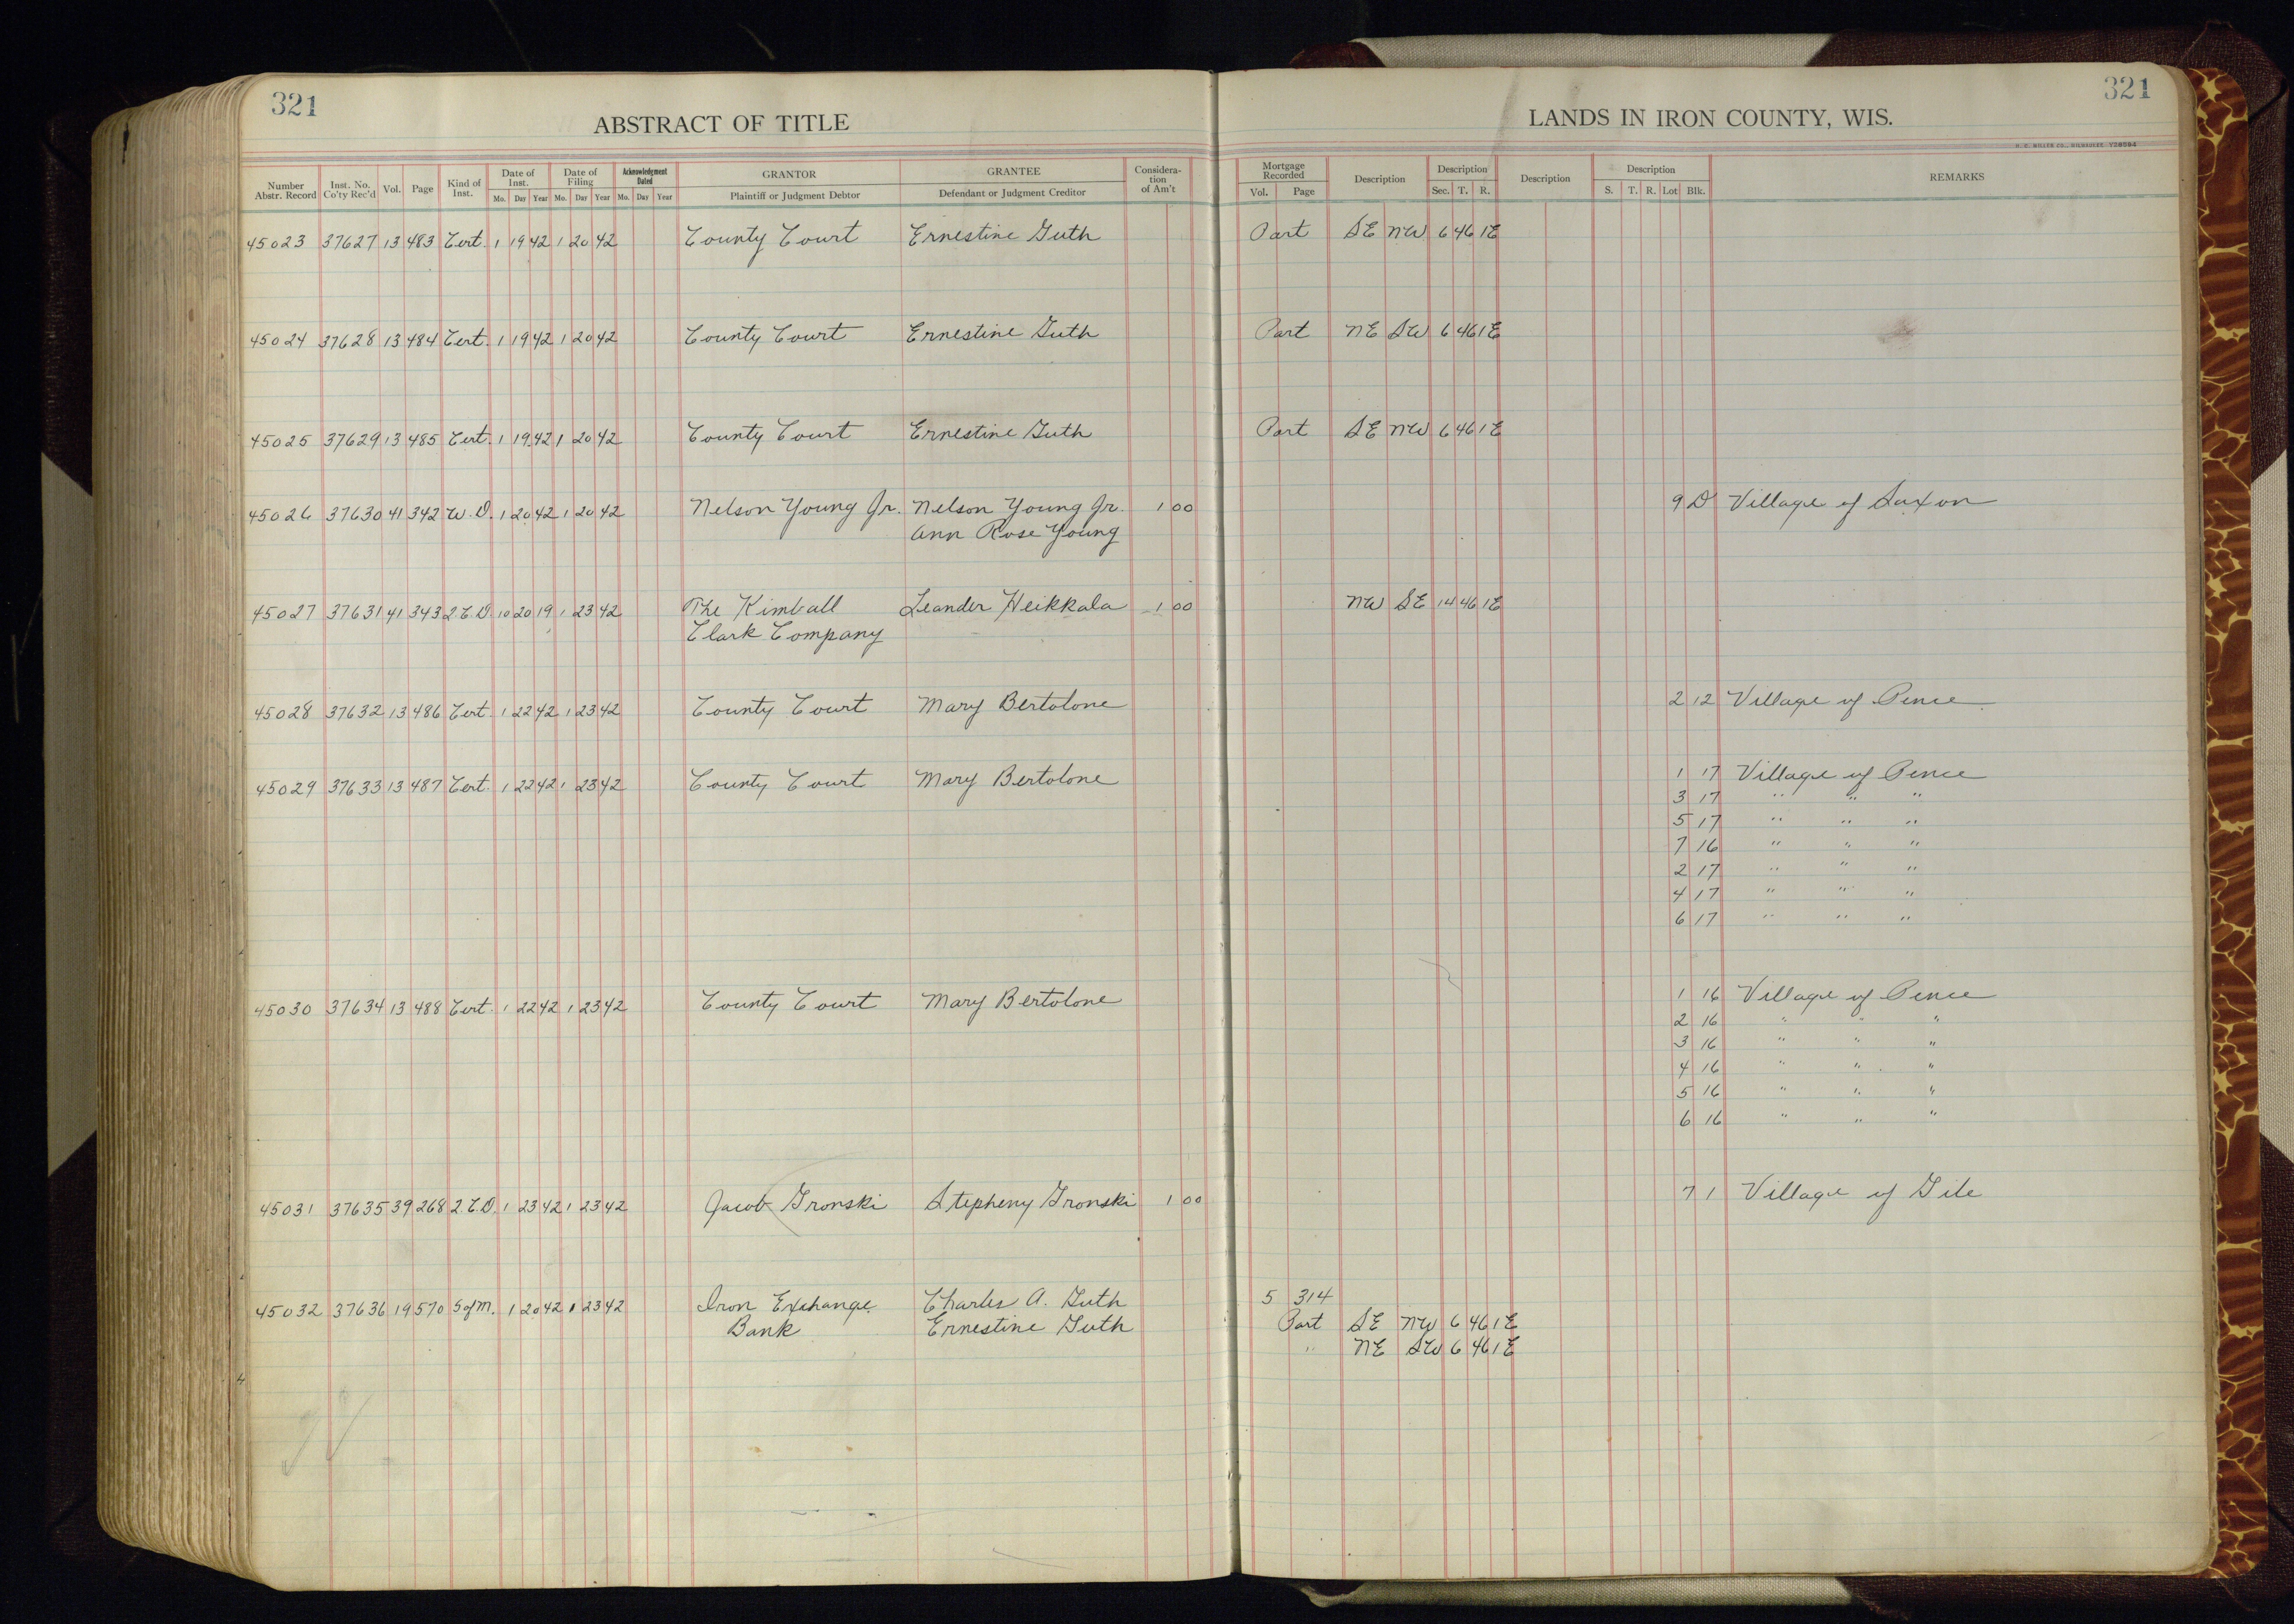 321
321
ABSTRACT OF TITLE
LANDS IN IRON COUNTY, WIS.
H. C. MILLER CO., MILWAUKEE
Number Abstr. Record Inst. No. Co'ty Rec'd Vol. Page Kind of Inst. Date of Inst. Mo. Day Year Date of Filing Mo. Day Year Acknowledgment Dated Mo. Day Year GRANTOR Plaintiff or Judgment Debtor GRANTEE Defendant or Judgment Creditor Considera-tion of Am't Mortgage Recorded Vol. Page Description Description Sec. T. R. Description Description S. T. R. Lot Blk. REMARKS
45023 37627 13 483 Cert. 1 19 42 1 20 42 County Court Ernestine Guth Part SE NW 6 46 1E
45024 37628 13 484 Cert. 1 19 42 1 20 42 County Court Ernestine Guth Part NE SW 6 46 1E
45025 37629 13 485 Cert. 1 19 42 1 20 42 County Court Ernestine Guth Part SE NW 6 46 1E
45026 37630 41 342 W.D. 1 20 42 1 20 42 Nelson Young Jr. Nelson Young Jr. 1 00 9 D Village of Saxon
Ann Rose Young
45027 37631 41 343 2.C.D. 10 20 19 1 23 42 The Kimball Leander Heikkala 1 00 NW SE 14 46 1E
Clark Company
45028 37632 13 486 Cert. 1 22 42 1 23 42 County Court Mary Bertolone 2 12 Village of Pence
45029 37633 13 487 Cert. 1 22 42 1 23 42 County Court Mary Bertolone 1 17 Village of Pence
3 17 " " "
5 17 " " "
7 16 " " "
2 17 " " "
4 17 " " "
6 17 " " "
45030 37634 13 488 Cert. 1 22 42 1 23 42 County Court Mary Bertolone 1 16 Village of Pence
2 16 " " "
3 16 " " "
4 16 " " "
5 16 " " "
6 16 " " "
45031 37635 39 268 2.C.D. 1 23 42 1 23 42 Jacob Gronski Stepheny Gronski 1 00 7 1 Village of Gile
45032 37636 19 570 S of M. 1 20 42 1 23 42 Iron Exchange Charles A. Guth 5 314
Bank Ernestine Guth Part SE NW 6 46 1E
" NE SW 6 46 1E